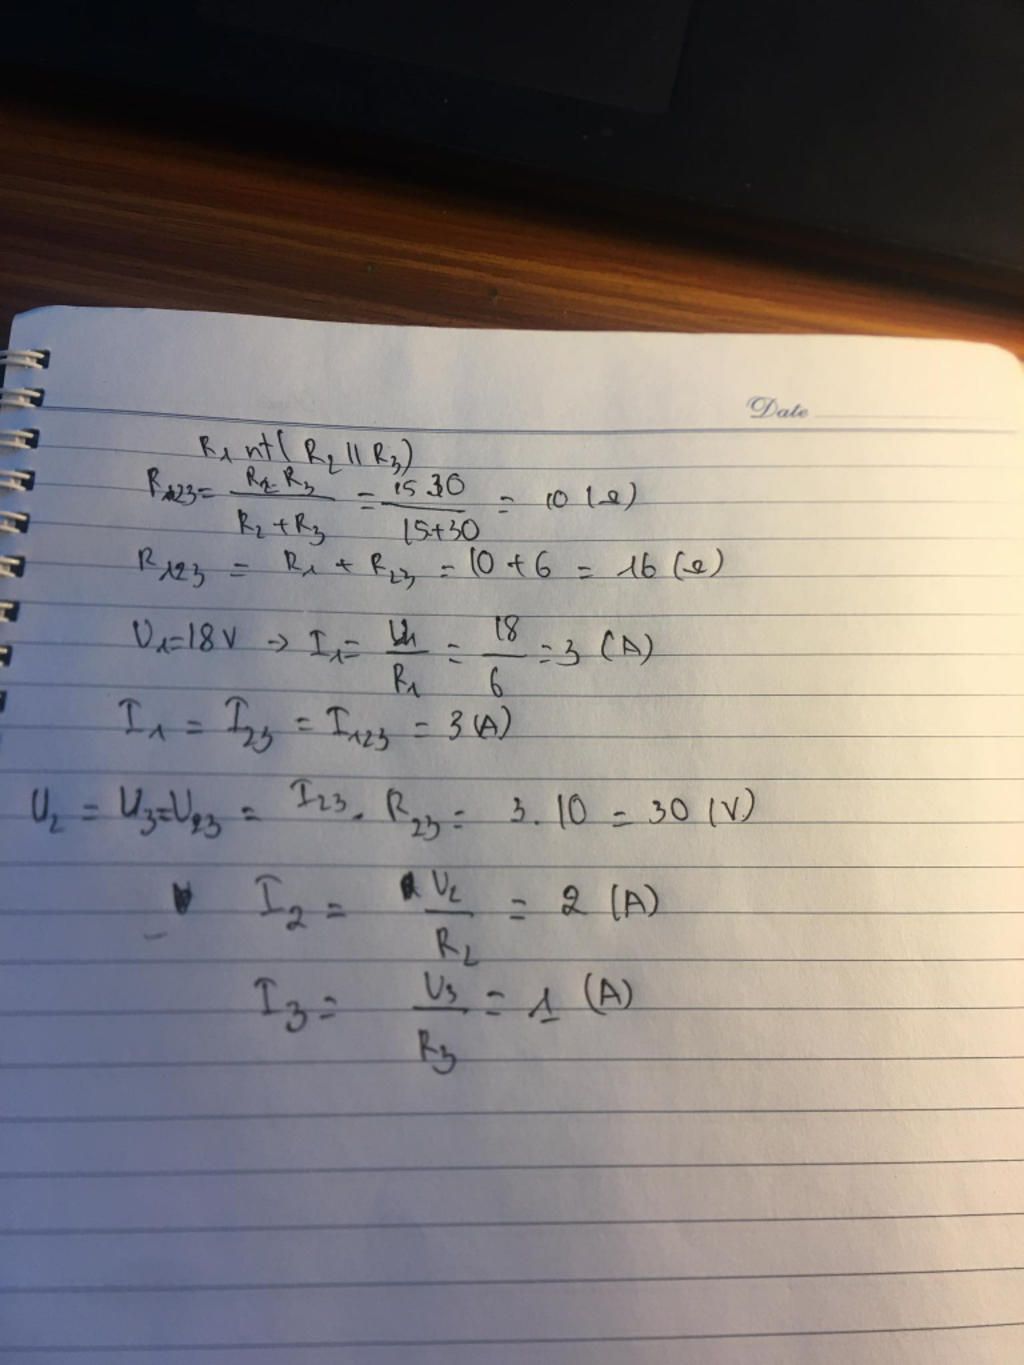 Date
R1 nt (R2 // R3)
R23 = R2.R3 / R2+R3 = 15.30 / 15+30 = 10 (Ω)
R123 = R1 + R23 = 10 + 6 = 16 (Ω)
U1=18V → I1= U1 / R1 = 18 / 6 = 3 (A)
I1 = I23 = I123 = 3 (A)
U2 = U3=U23 = I23 . R23 = 3.10 = 30 (V)
I2 = U2 / R2 = 2 (A)
I3 = U3 / R3 = 1 (A)